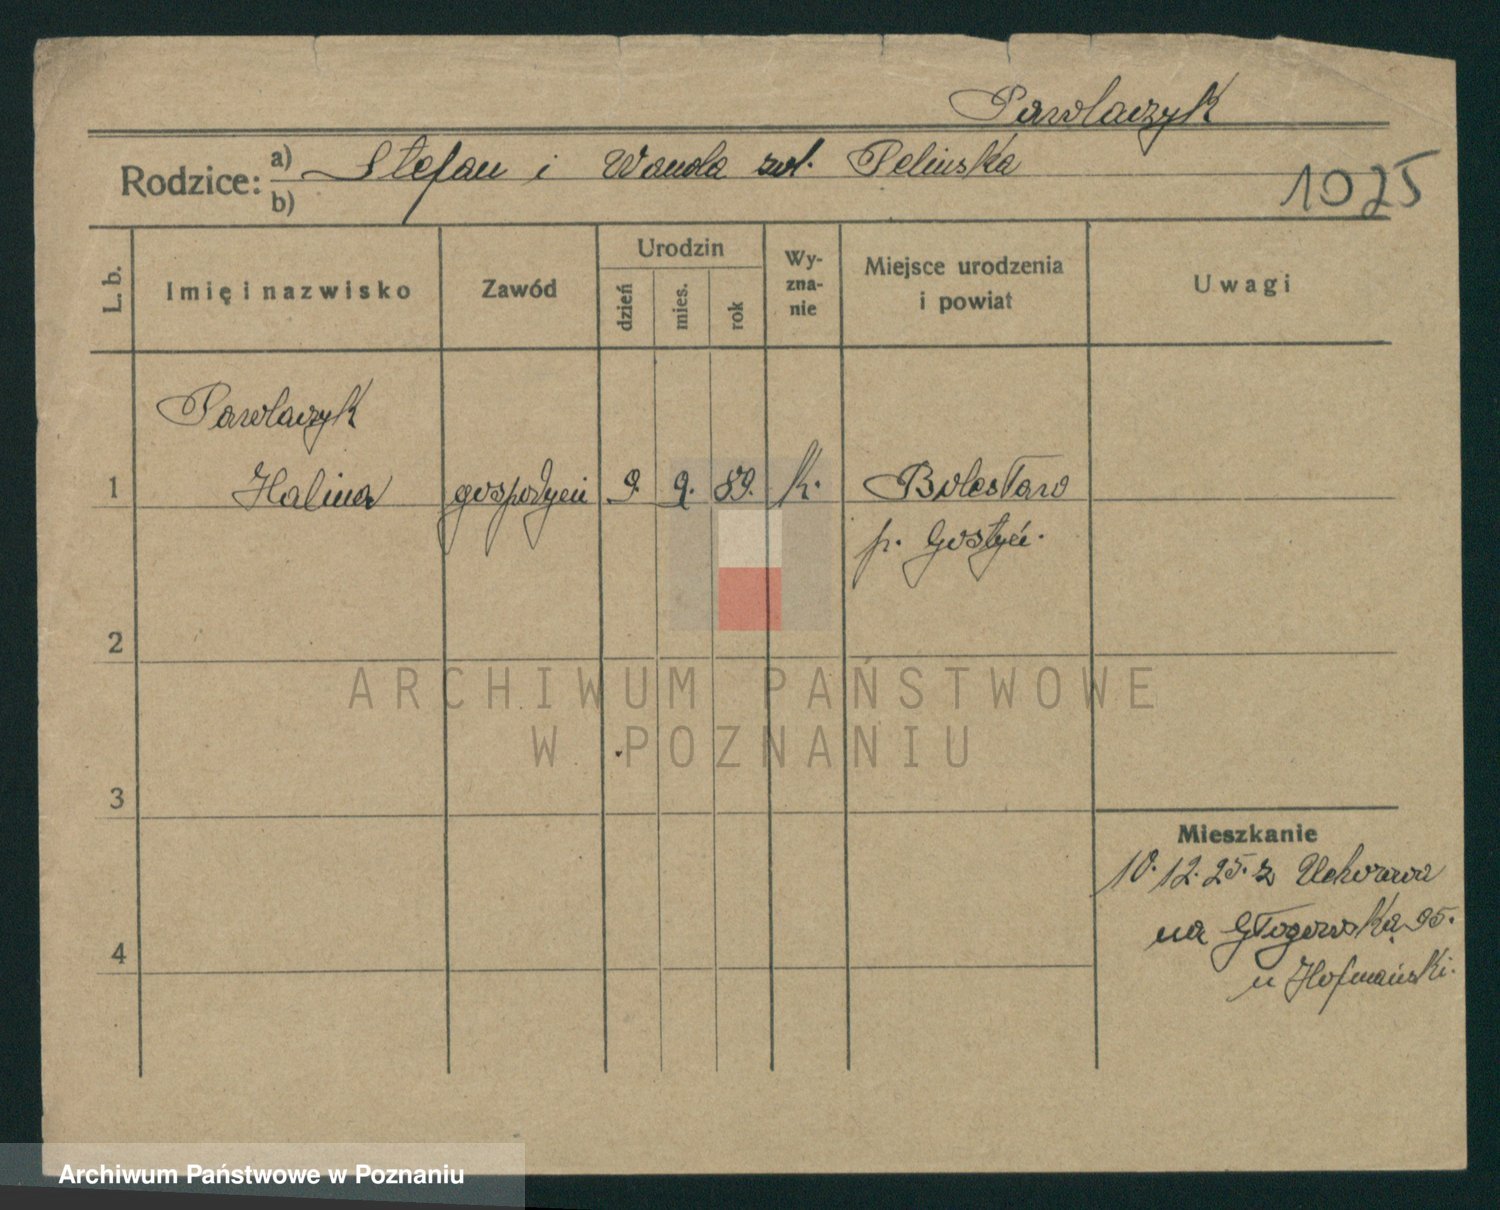 Pawlaczyk
Rodzice: a) Stefan i Wanda zd. Pelinska
b)
1025
L. b.
Imię i nazwisko
Zawód
Urodzin
dzień
mies.
rok
Wy-
zna-
nie
Miejsce urodzenia
i powiat
Uwagi
Pawlaczyk
1 Halina gospodyni 9. 9. 89. k. Bolesław
p. Gostyń.
2
ARCHIWUM PAŃSTWOWE
W POZNANIU
3
Mieszkanie
10.12.25. z
na Głogowską 95.
u Hofmański.
4
Archiwum Państwowe w Poznaniu